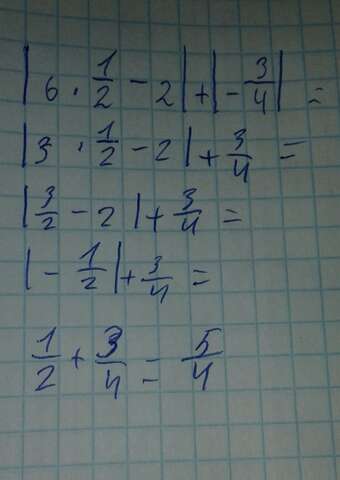 |6 · 1/2 - 2| + |- 3/4| =
|3 · 1/2 - 2| + 3/4 =
|3/2 - 2| + 3/4 =
|- 1/2| + 3/4 =
1/2 + 3/4 = 5/4